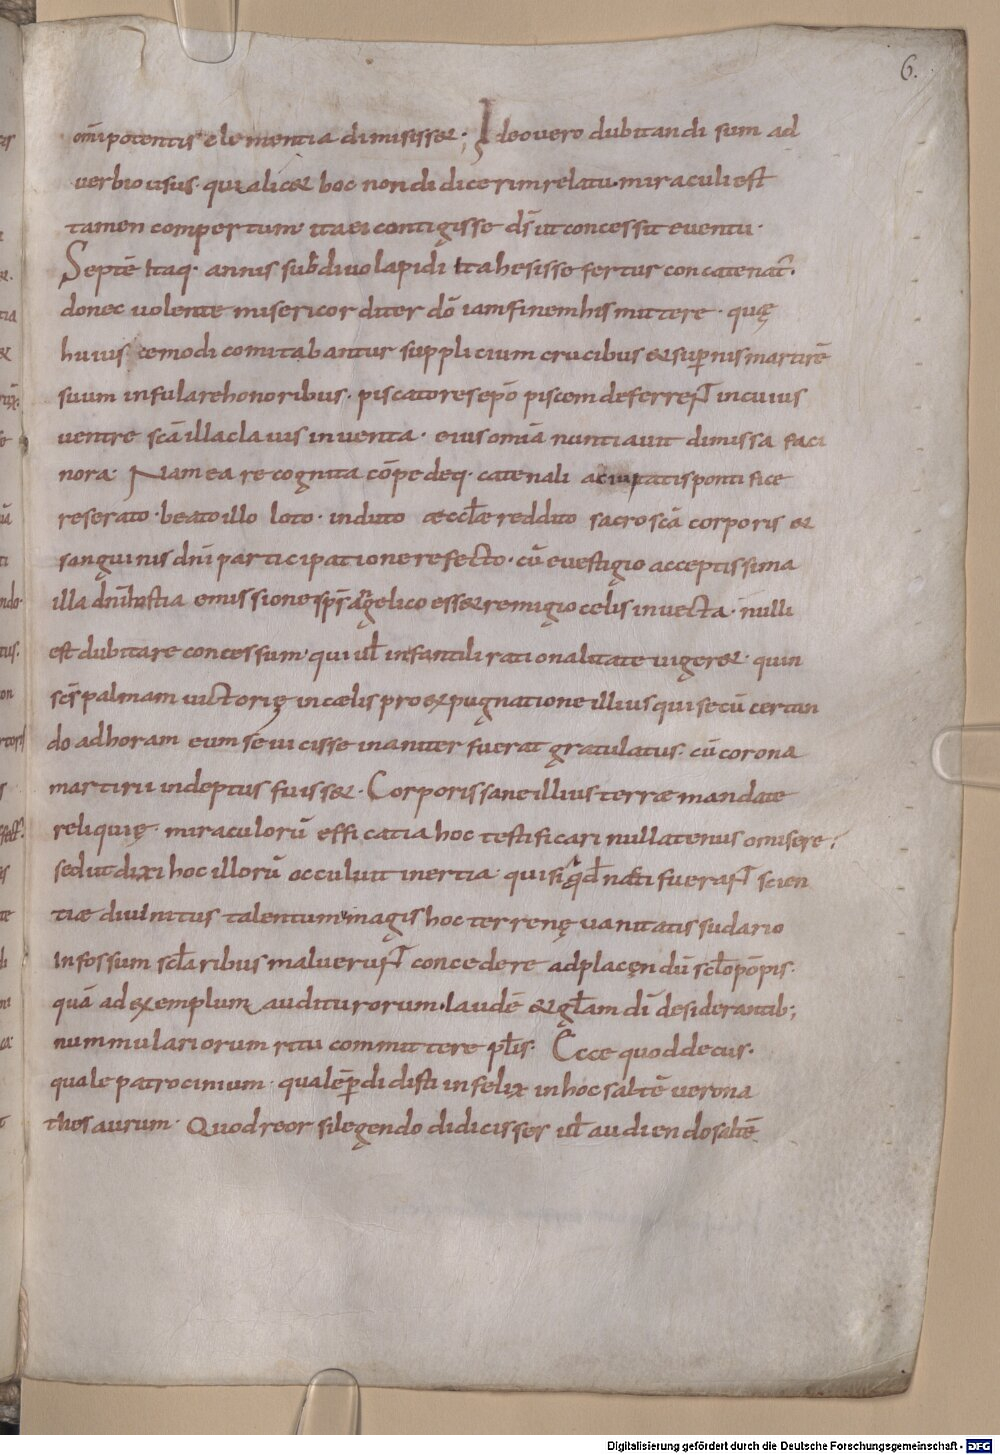 6.
om̄ipotentis clementia dimisiss&; Ideo vero dubitandi sum ad
verbio usus· qui alic& hoc non didicerim relatu· miraculi est
tamen compertum· ita ei contigisse ds̄ ut concessit eventu·
Septē itaq· annis sub divo lapidi ita hesisse fertur concatenat̄·
donec volente misericorditer dō iam finem his mittere· quę
huiuscemodi comitabantur supplicium crucibus & suꝑnis martirē
suum infulare honoribus· piscatores ep̄o piscem deferrent in cuius
ventre scā illa clavis inventa· eius om̄ia nuntiavit dimissa faci
nora· Nam ea re cognita cōpedeq· catenali a civitatis pontifice
reserato· beato illo loto· induto æccl̄æ reddito sacroscā corporis &
sanguinis dnī participatione refecto· cū evestigio acceptissima
illa dnī hostia emissione sps̄ angelico ess& remigio celis invecta· nulli
est dubitare concessum· qui ul̄ infantili rationalitate viger&· quin
scs̄ palmam victorię in cælis pro expugnatione illius qui secū certan
do ad horam eum se vicisse inaniter fuerat gratulatus· cū corona
martirii indeptus fuiss&· Corporis sane illius terræ mandatæ
reliquię· miraculorū efficatia hoc testificari nullatenus omisere·
sed ut dixi hoc illorū occuluit inertia qui siqd̄ nacti fuerant scien
tiæ divinitus talentum· magis hoc terrenę vanitatis sudario
infossum scl̄aribus maluerunt concedere ad placendū scl̄o pōpis·
quā ad exemplum auditurorum· laudē & gl̄am dī desiderantib;
nummulariorum ritu committere pl̄is· Ecce quod decus·
quale patrocinium· qualē ꝑdidisti infelix in hoc saltē verona
thesaurum· Quod reor si legendo didicisses ul̄ audiendo saltē
Digitalisierung gefördert durch die Deutsche Forschungsgemeinschaft - DFG